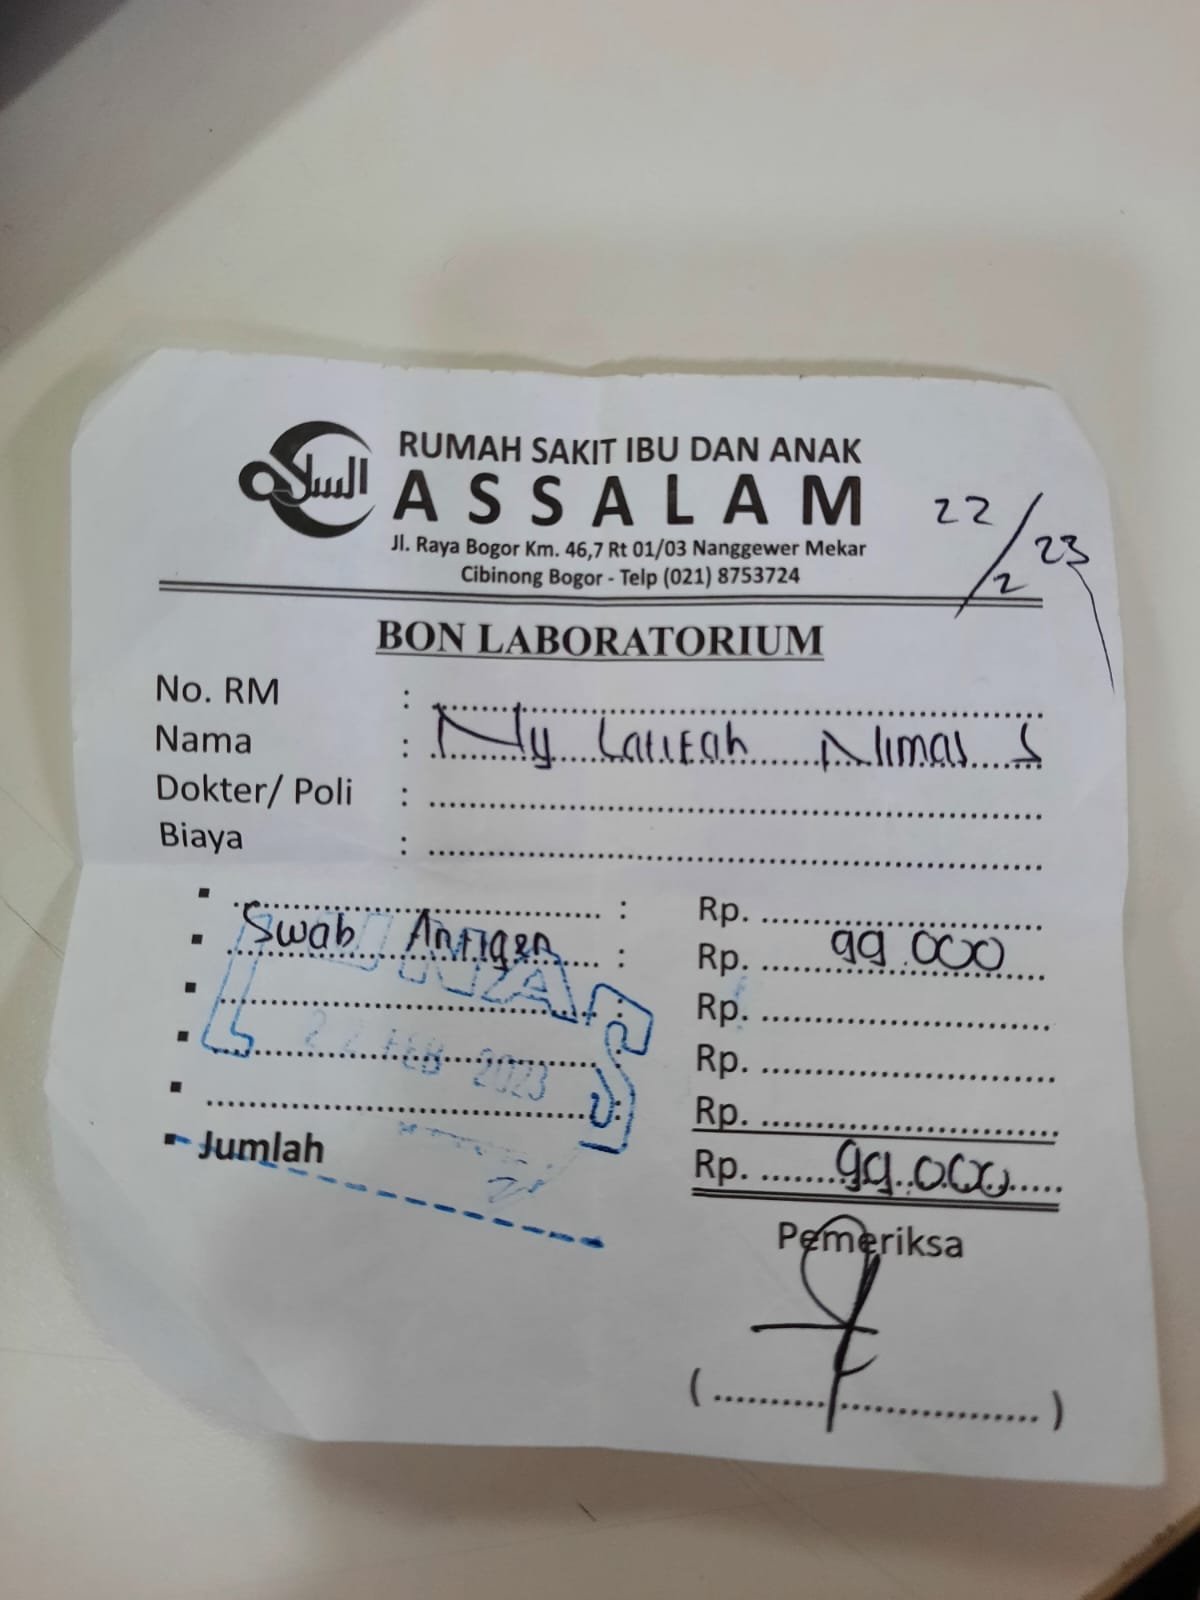 السلام
RUMAH SAKIT IBU DAN ANAK
ASSALAM
Jl. Raya Bogor Km. 46,7 Rt 01/03 Nanggewer Mekar
Cibinong Bogor - Telp (021) 8753724
22/2 23
BON LABORATORIUM
No. RM :
Nama : Ny Latifah Nimas S
Dokter/ Poli :
Biaya :
: Rp.
Swab Antigen : Rp. 99.000
: Rp.
: Rp.
: Rp.
Jumlah Rp. 99.000
LUNAS
22 FEB 2023
Pemeriksa
( )